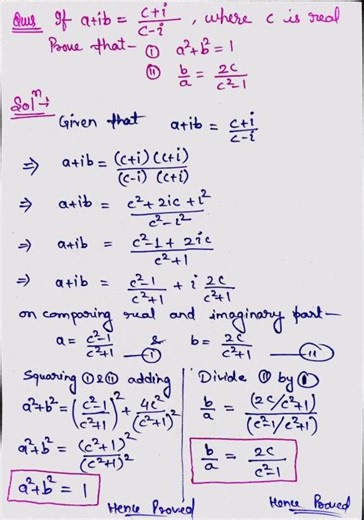 Ques If a+ib = (c+i)/(c-i), where c is real
Prove that- (i) a²+b²=1
(ii) b/a = 2c/(c²-1)
Solⁿ→
Given that a+ib = (c+i)/(c-i)
⇒ a+ib = (c+i)(c+i)/(c-i)(c+i)
⇒ a+ib = (c²+2ic+i²)/(c²-i²)
⇒ a+ib = (c²-1+2ic)/(c²+1)
⇒ a+ib = (c²-1)/(c²+1) + i 2c/(c²+1)
on comparing real and imaginary part-
a = (c²-1)/(c²+1) —(i) & b = 2c/(c²+1) —(ii)
Squaring (i) & (ii) adding
a²+b² = ((c²-1)/(c²+1))² + 4c²/(c²+1)²
a²+b² = (c²+1)²/(c²+1)²
a²+b² = 1
Hence Proved
Divide (ii) by (i)
b/a = (2c/c²+1)/(c²-1/c²+1)
b/a = 2c/(c²-1)
Hence Proved